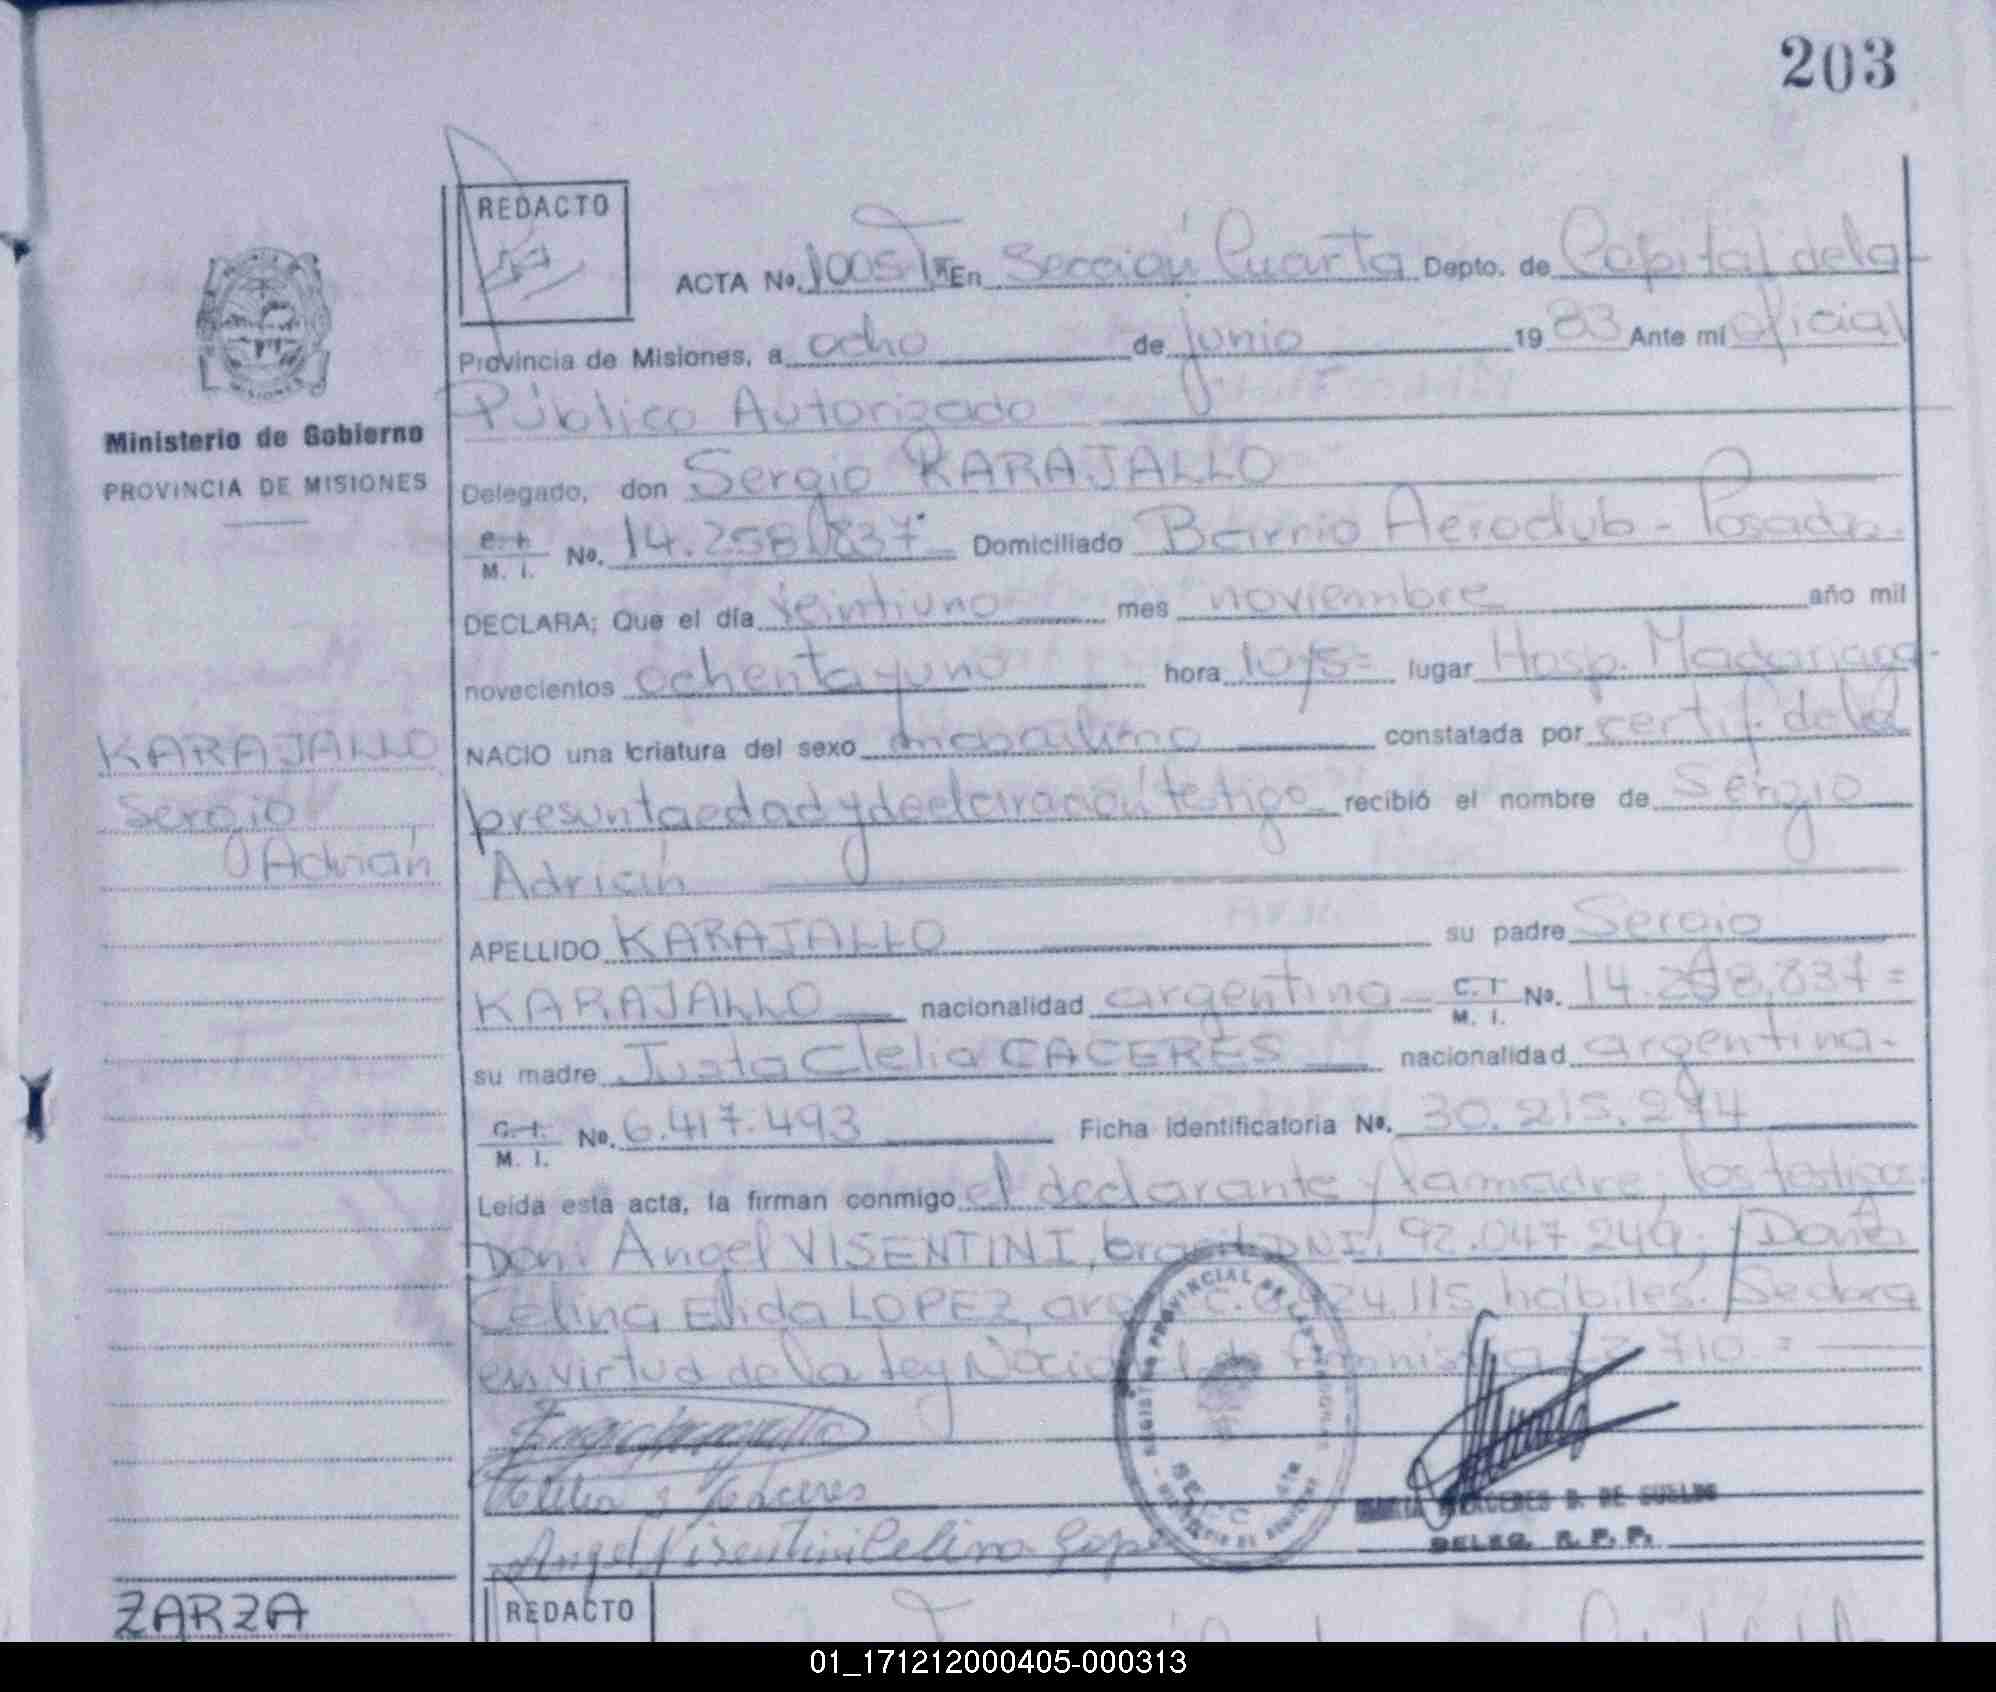 203
REDACTO
ACTA No. 1005 T En Sección Cuarta Depto. de Capital de la
Provincia de Misiones, a ocho de junio 1983 Ante mí oficial
Público Autorizado
Ministerio de Gobierno
PROVINCIA DE MISIONES
Delegado, don Sergio KARAJALLO
C. I. M. I. No. 14.258.837 Domiciliado Barrio Aeroclub - Posadas.
DECLARA; Que el día veintiuno mes noviembre año mil
novecientos ochenta y uno hora 10,15= lugar Hosp. Madariaga-
KARAJALLO
Sergio
Adrián
NACIO una criatura del sexo masculino constatada por certif. de la
presunta edad y declaración testigo recibió el nombre de Sergio
Adrián
APELLIDO KARAJALLO su padre Sergio
KARAJALLO nacionalidad argentina C. I. M. I. No. 14.258.837=
su madre Justa Clelia CACERES nacionalidad argentina.
C. I. M. I. No. 6.417.493 Ficha identificatoria No. 30.215.274
Leída esta acta, la firman conmigo el declarante y la madre, los testigos
Don: Angel VISENTINI, brasil. DNI. 92.047.249; Doña
Celina Elida LOPEZ, arg. L.C. 424.115 hábiles. Se labra
en virtud de la Ley Nacional de Amnistía 22.710.=
Clelia J Caceres
Angel Visentini Celina Lopez
REGISTRO PROVINCIAL DE LAS PERSONAS
DE SUELDO
DELEG. R. P. P.
ZARZA
REDACTO
01_171212000405-000313